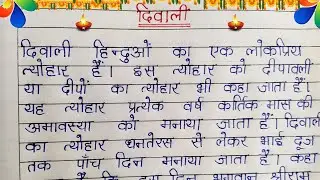 दिवाली
दिवाली हिन्दुओं का एक लोकप्रिय
त्योहार हैं। इस त्योहार को दीपावली
या दीपों का त्योहार भी कहा जाता हैं।
यह त्योहार प्रत्येक वर्ष कार्तिक मास की
अमावस्या को मनाया जाता हैं। दिवाली
का त्योहार धनतेरस से लेकर भाई दूज
तक पाँच दिन मनाया जाता हैं। कहा